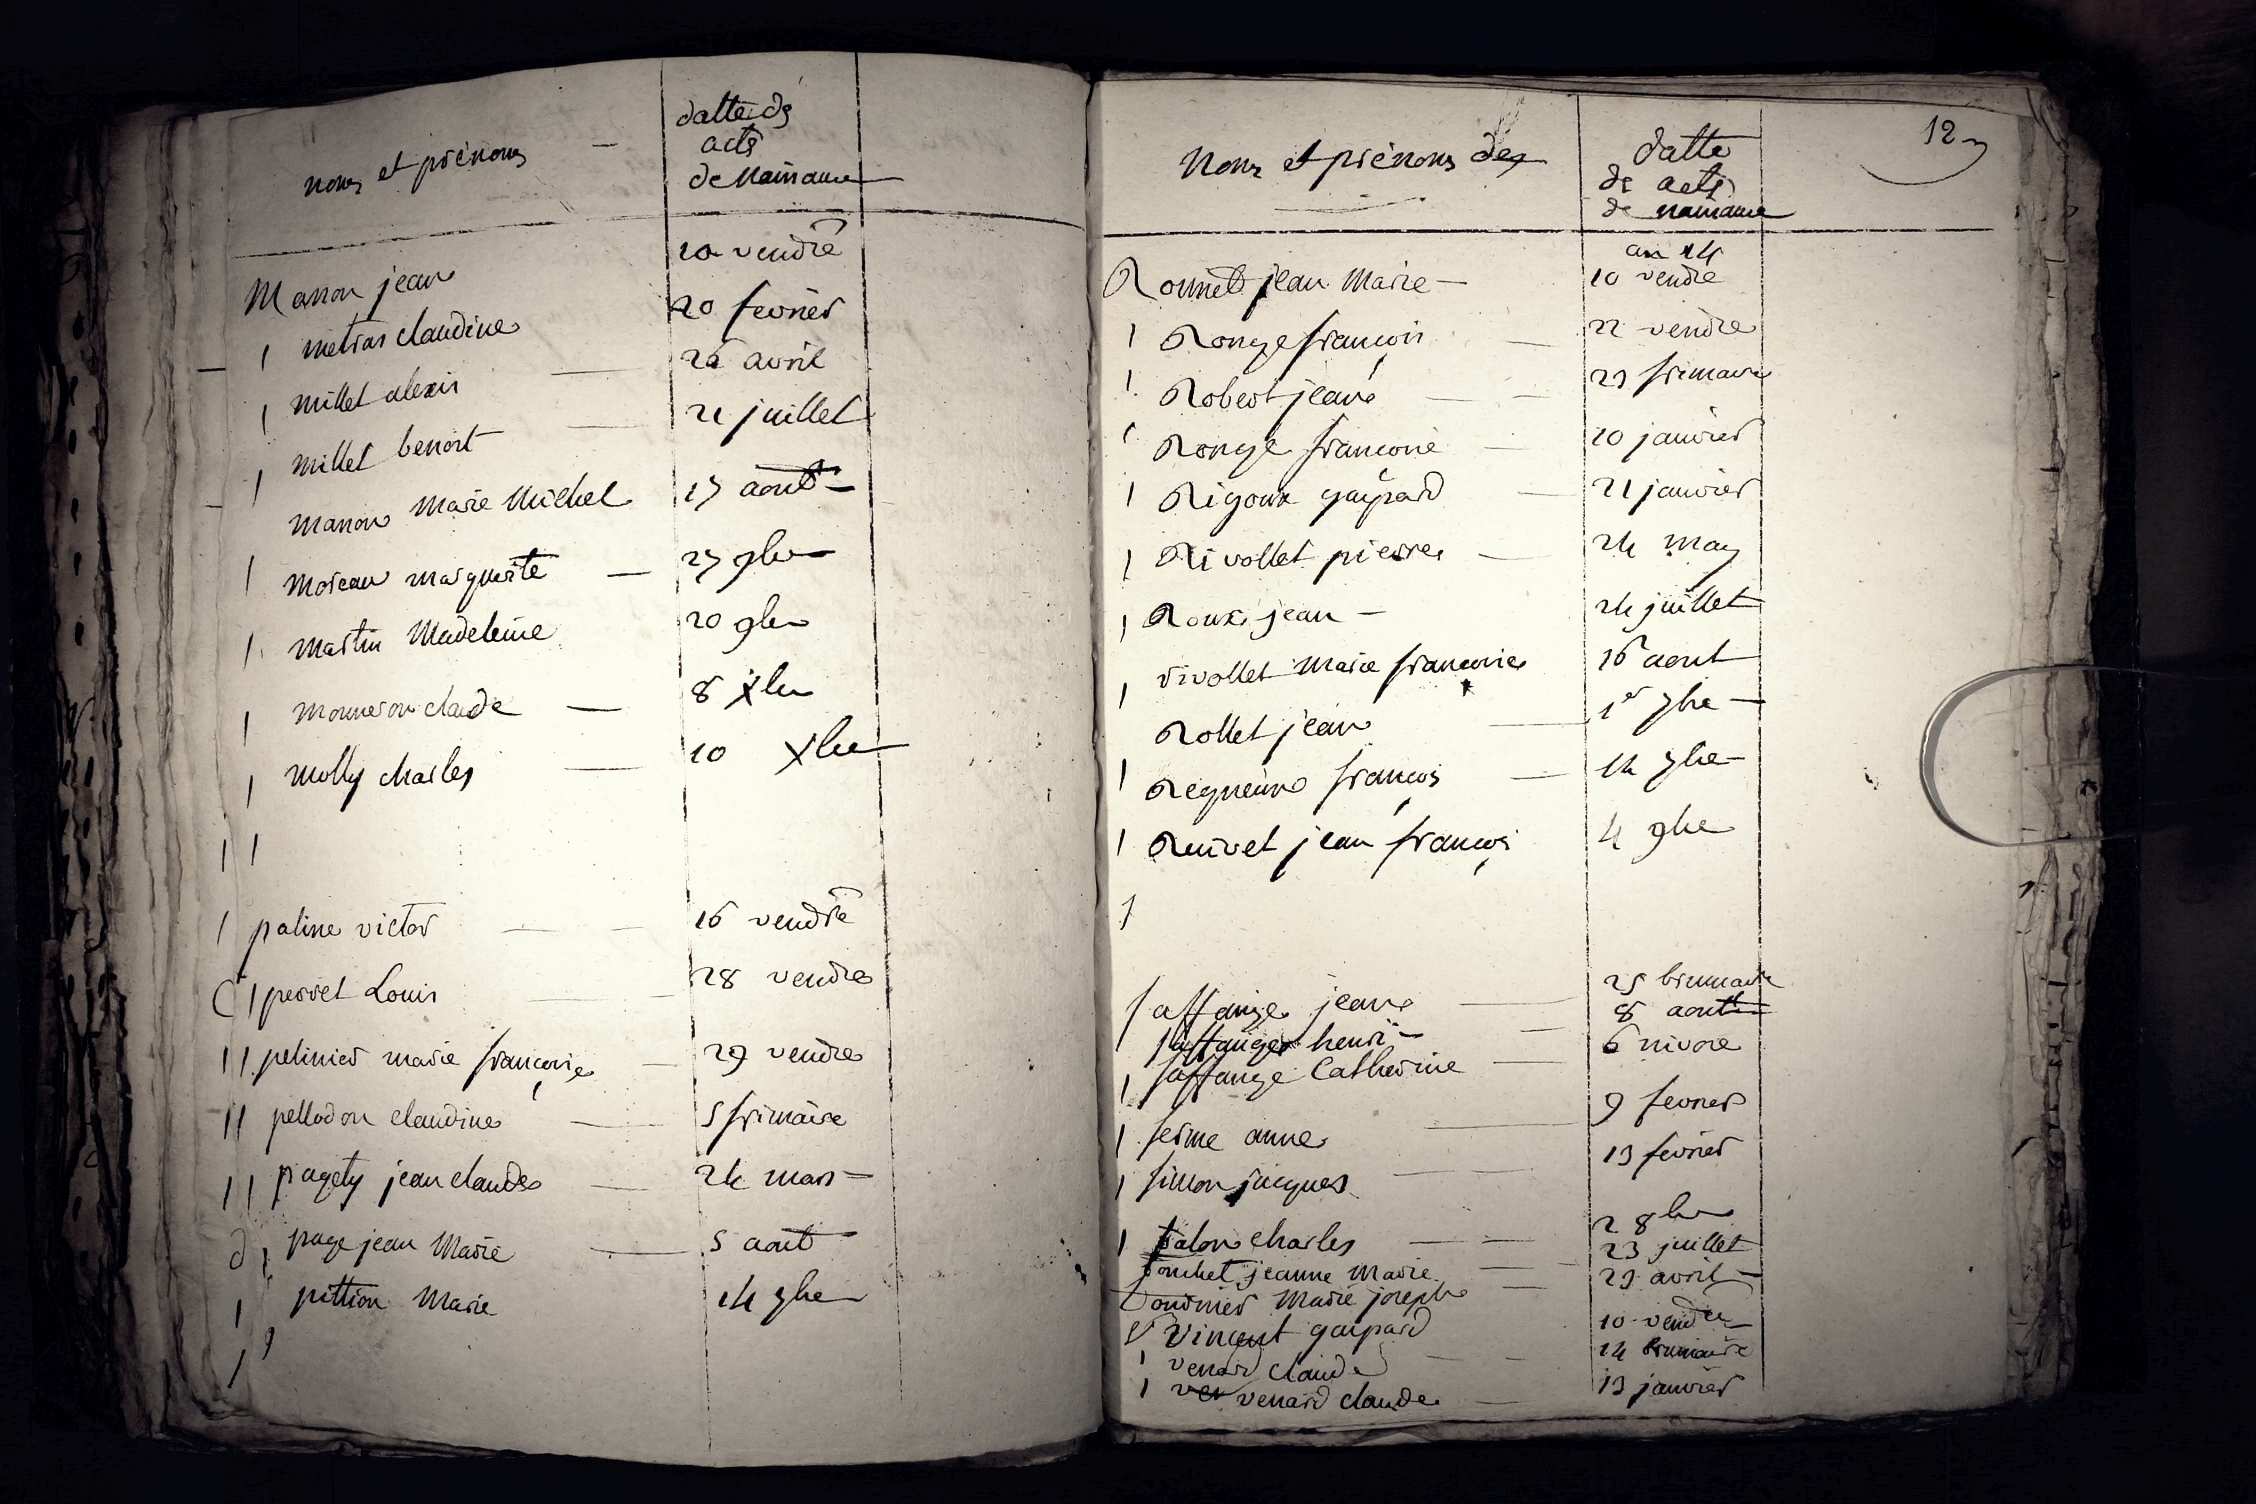 noms et prénoms — datte ds
acts
de naissance
Manon jean 10 vendre
metras claudine 20 fevrier
millet alexis — 26 avril
millet benoit — 21 juillet
manon Marie Michel 17 aout —
moreau marguerite — 27 9bre
martin Madeleine 20 9bre
monneron claude — 8 Xbre
molly charles — 10 Xbre
paline victor — 16 vendre
perret Louis — 28 vendre
pelinier marie françoise — 29 vendre
pellodon claudine — 5 frimaire
pagety jean claude — 24 mars —
page jean Marie — 5 aout
pittion Marie 14 7bre
12
Noms et prénoms des datte
de acts
de naissance
an 14
Ronnet jean Marie — 10 vendre
Ronge françois — 22 vendre
Robert jean — 23 frimaire
Ronge françoise — 20 janvier
Rigoux gaspard — 21 janvier
Rivollet pierre — 24 may
Roux jean — 24 juillet
rivollet Marie françoise 16 aout
Rollet jean — 1er 7bre —
françois — 14 7bre —
Ruivet jean françois 4 9bre
saffange jean — 25 brumaire
saffange henri — 8 aout
saffange Catherine — 6 nivose
serme anne — 9 fevrier
simon jacques — 13 fevrier
talon charles — 2 8bre
touchet jeanne Marie — 23 juillet
tournier Marie joseph — 23 avril —
Vincent gaspard 10 vendre
venard claude — 14 brumaire
ven venard claude — 13 janvier